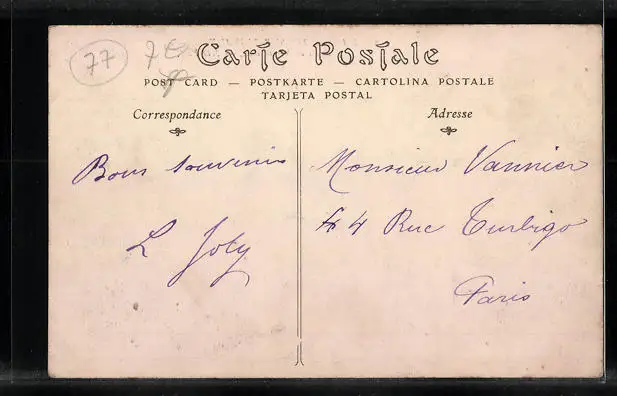 77 7€
Carte Postale
POST CARD — POSTKARTE — CARTOLINA POSTALE
TARJETA POSTAL
Correspondance
Adresse
Bons souvenirs
L Joly
Monsieur Vannier
44 Rue Turbigo
Paris